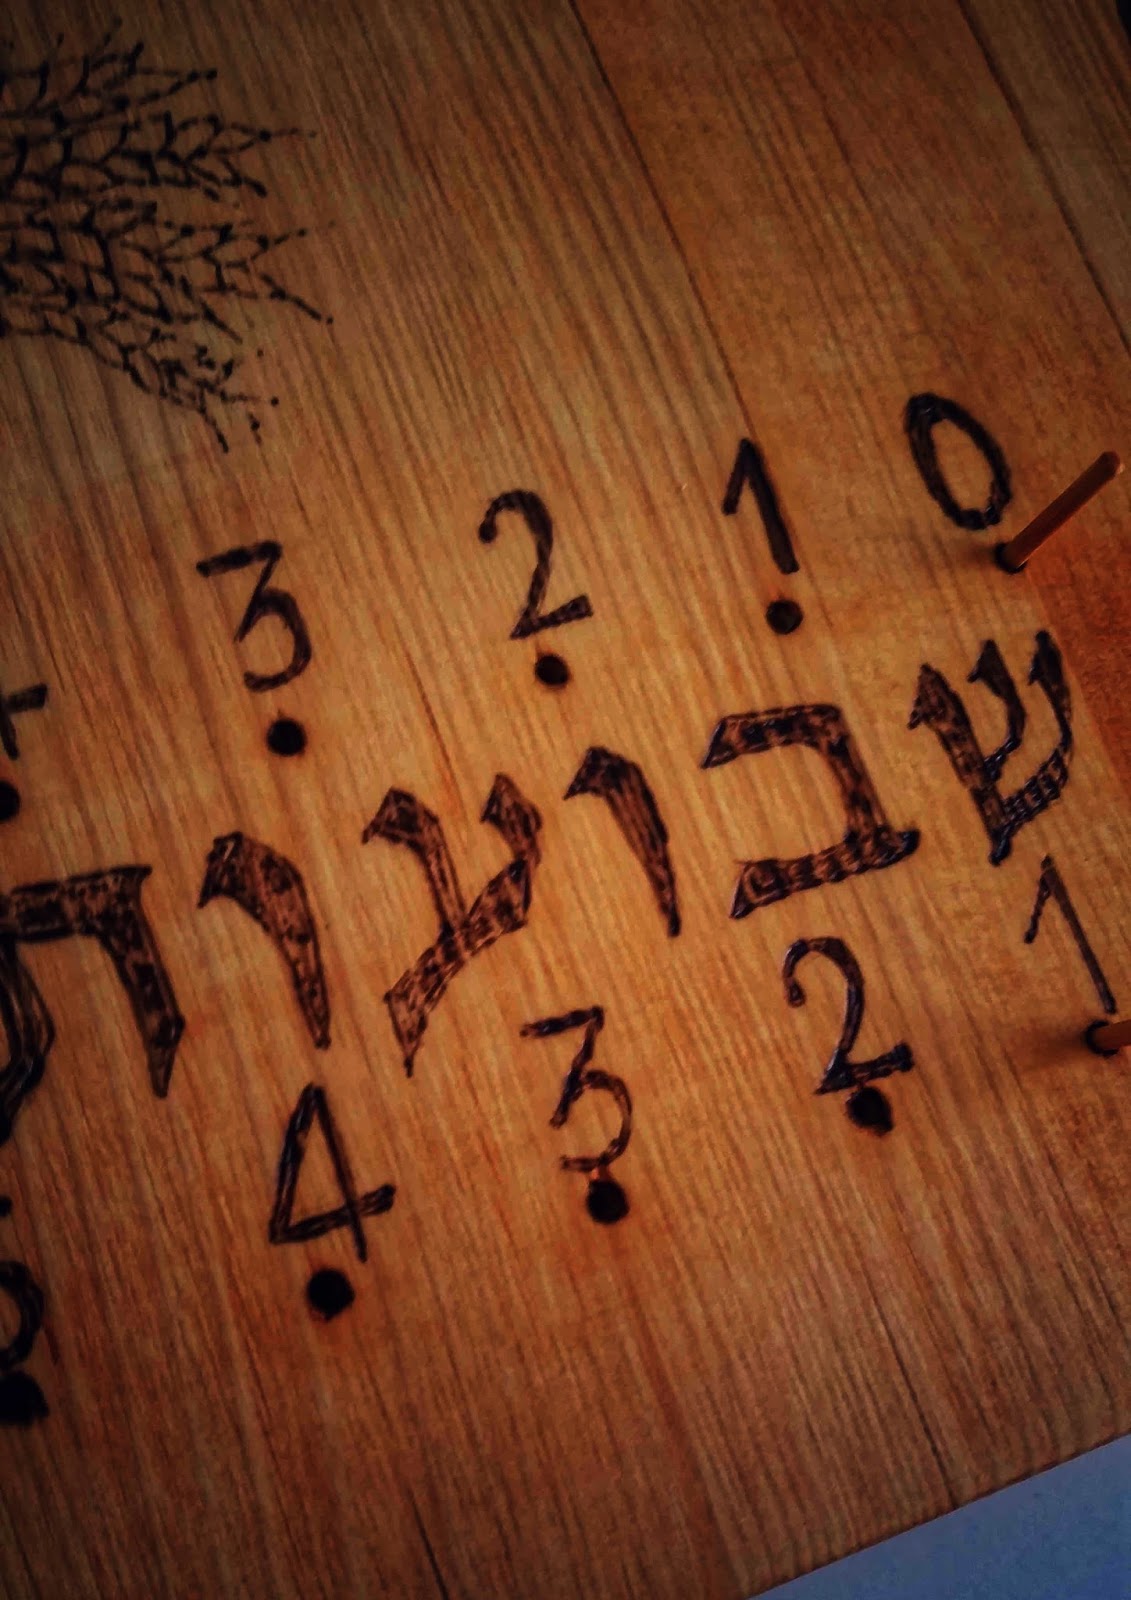 0 1 2 3
שבועות
1 2 3 4